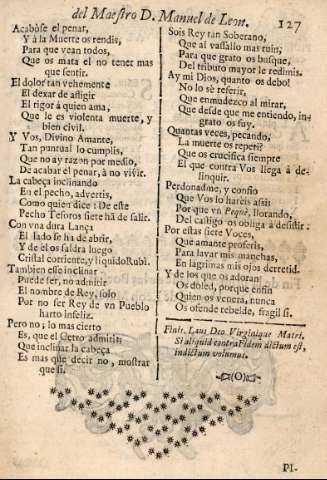 del Maestro D. Manuel de Leon. 127
Acabòse el penar,
Y à la Muerte os rendis,
Para que vean todos,
Que os mata el no tener mas
que sentir.
El dolor tan vehemente
El dexar de afligir
El rigor à quien ama,
Que le es violenta muerte, y
bien civil.
Y Vos, Divino Amante,
Tan puntual lo cumplis,
Que no ay razon por medio,
De acabar el penar, à no vivir.
La cabeça inclinando
En el pecho, advertis,
Como quien dice: De este
Pecho Tesoros siete hà de salir.
Con vna dura Lança
El lado se ha de abrir,
Y de èl os saldra luego
Cristal corriente, y liquido Rubì.
Tambien esse inclinar
Puede ser, no admitir
El nombre de Rey, solo
Por no ser Rey de vn Pueblo
harto infeliz.
Pero no; lo mas cierto
Es, que el Cetro admitis:
Que inclinar la cabeça
Es mas que decir no, mostrar
que sì.
Sois Rey tan Soberano,
Que al vassallo mas ruin,
Para que grato os busque,
Del tributo mayor le redimis.
Ay mi Dios, quanto os debo!
No lo sè referir,
Que enmudezco al mirar,
Que desde que me entiendo, in-
grato os fuy.
Quantas veces, pecando,
La muerte os repeti?
Que os crucifica siempre
El que contra Vos llega à de-
linquir.
Perdonadme, y confio
Que Vos lo harèis assi;
Por que vn Pequè, llorando,
Del castigo os obliga à desistir.
Por estas siete Voces,
Que amante proferis,
Para lavar mis manchas,
En lagrimas mis ojos derretid.
Y de los que os adoran
Os doled, porque en fin
Quien os venera, nunca
Os ofende rebelde, fragil sì.
Finis. Laus Deo. Virginique Matri.
Si aliquid contra Fidem dictum est,
indictum volumus.
(O)
PI-